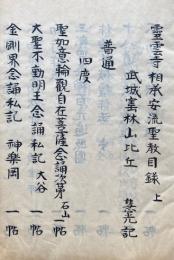 靈雲寺相承安流聖教目録 上
武城寳林山比丘 慧光記
普通
四度
聖如意輪觀自在菩薩念誦次第 石山 一帖
大聖不動明王念誦私記 大谷 一帖
金剛界念誦私記 神樂岡 一帖